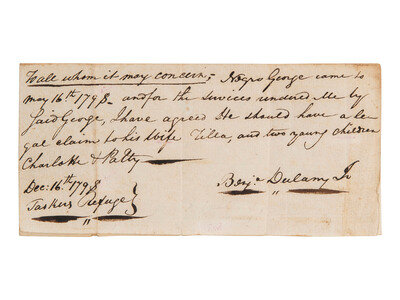 To all whom it may concern, Negro George came to
May 16th 1798 and for the services rendered Me by
Said George, I have agreed He should have a le=
gal claim to his Wife Tilla, and two young children
Charlotte & Patty
Dec. 16th 1798 Benja Dulany Jr
Taskers Refuge